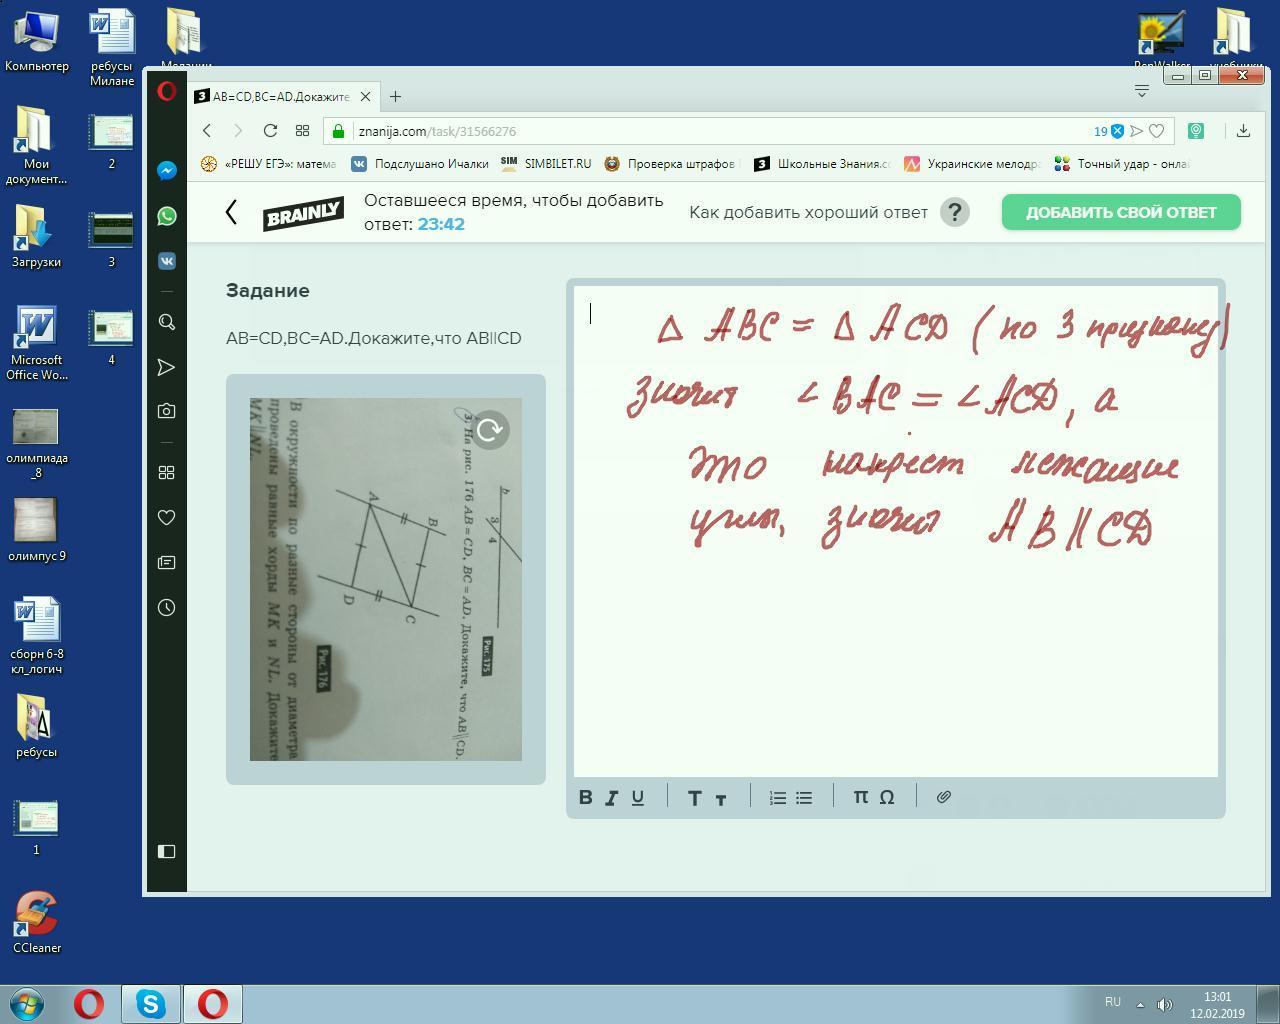 Компьютер
ребусы
Милане
Мои
докумен­т...
2
Загрузки
3
Microsoft
Office Wo...
4
олимпиада
_8
олимпус 9
сборн 6-8
кл_логич
ребусы
1
CCleaner
AB=CD,BC=AD.Докажите,
znanija.com/task/31566276
19
«РЕШУ ЕГЭ»: матема
Подслушано Ичалки
SIM SIMBILET.RU
Проверка штрафов
Школьные Знания.co
Украинские мелодра
Точный удар - онла
BRAINLY
Оставшееся время, чтобы добавить
ответ: 23:42
Как добавить хороший ответ ?
ДОБАВИТЬ СВОЙ ОТВЕТ
Задание
AB=CD,BC=AD.Докажите,что AB||CD
b
3
4
Рис. 175
3. На рис. 176 AB = CD, BC = AD. Докажите, что AB || CD.
A
B
C
D
Рис. 176
В окружности по разные стороны от диаметра
проведены равные хорды MK и NL. Докажите
MK || NL.
Δ ABC = Δ ACD (по 3 признаку)
значит ∠BAC = ∠ACD, а
это накрест лежащие
углы, значит AB || CD
B I U T т π Ω
RU
13:01
12.02.2019